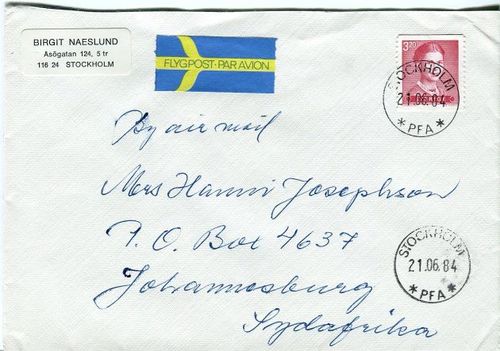 BIRGIT NAESLUND
Åsögatan 124, 5 tr
116 24 STOCKHOLM
FLYGPOST·PAR AVION
3.20
STOCKHOLM
21.06.84
* PFA *
By air mail
Mrs Hanni Josephson
P. O. Box 4637
Johannesburg
Sydafrika
STOCKHOLM
21.06.84
* PFA *